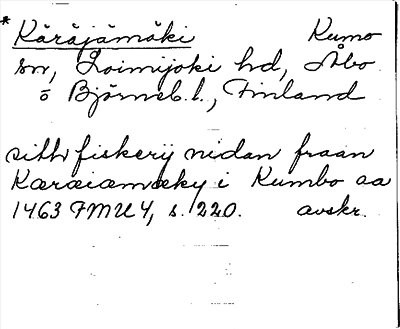 * Käräjämäki Kumo
sn, Loimijoki hd, Åbo
o Björneb. l., Finland
sitth fiskerij nidan fraan
Karæiamæky i Kumbo aa
1463 FMU 4, s. 220. avskr.